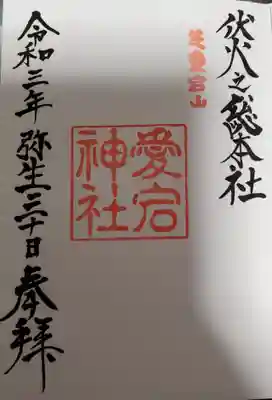 伏火之総本社
天愛宕山
愛宕
神社
令和三年 弥生三十日 奉拝